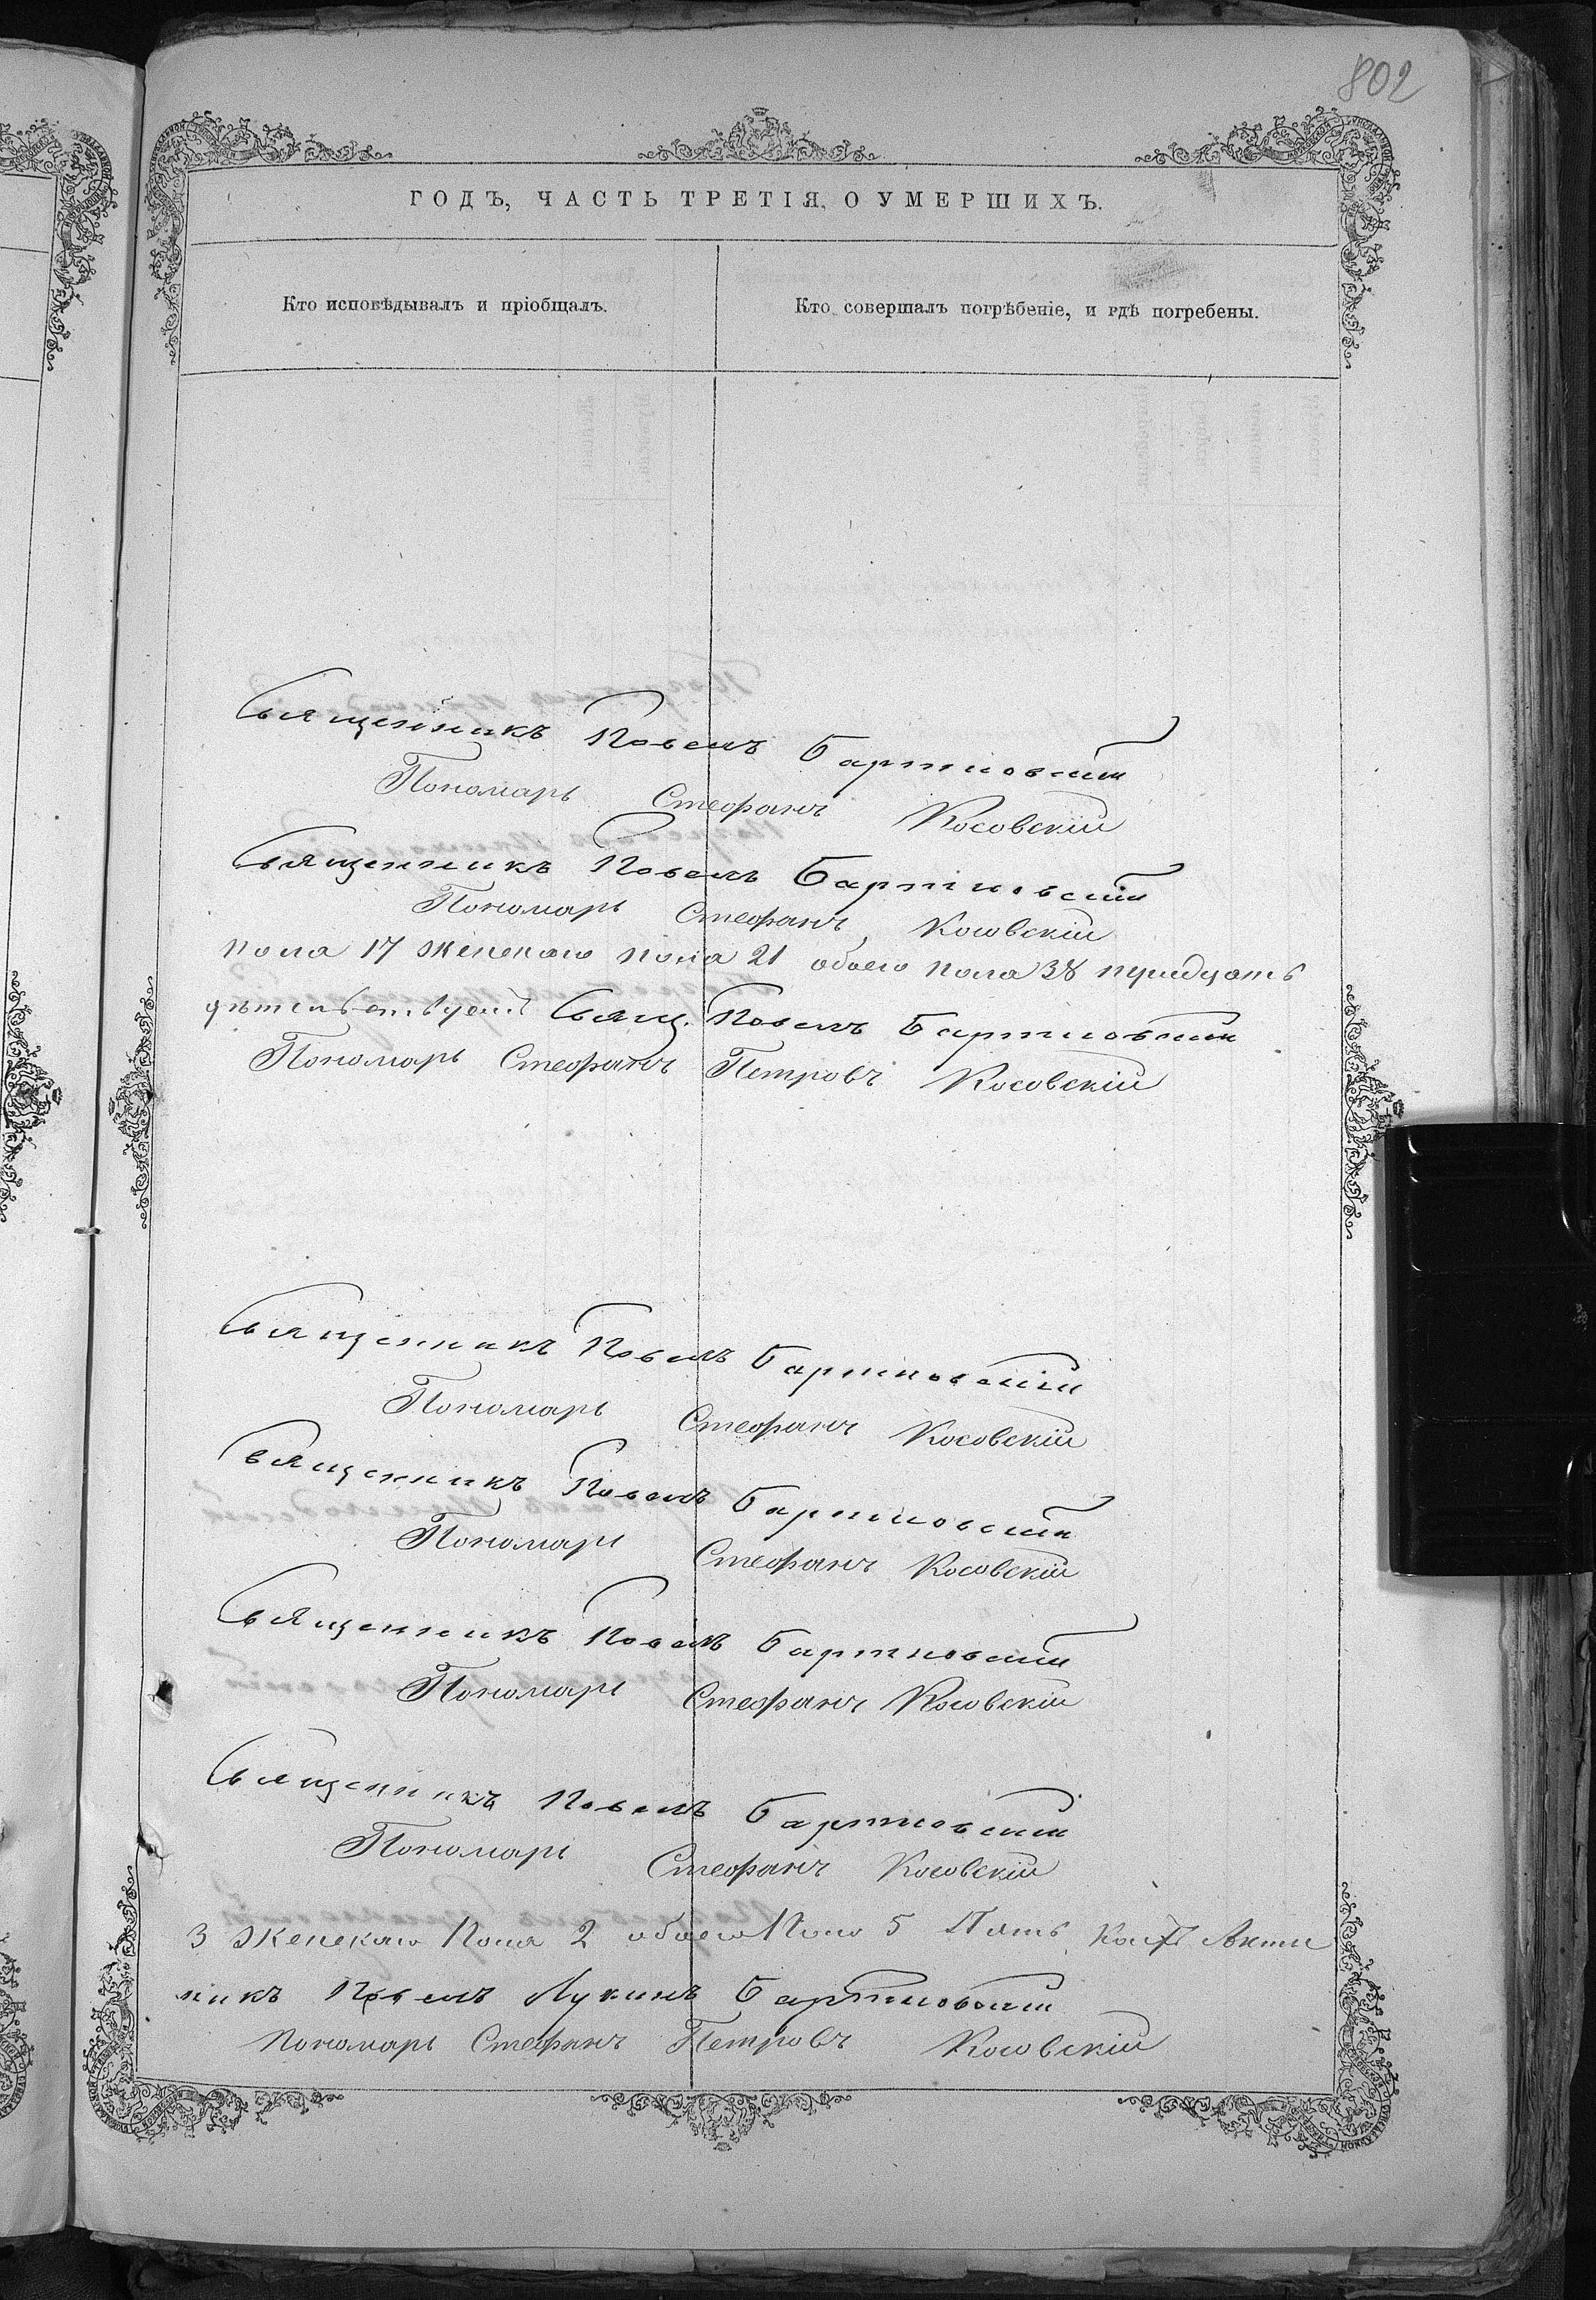 802
ГОДЪ, ЧАСТЬ ТРЕТІЯ, О УМЕРШИХЪ.
Кто исповѣдывалъ и пріобщалъ.
Кто совершалъ погрѣбеніе, и гдѣ погребены.
Священникъ Павелъ Бартновскій
Пономарь Стефанъ Косовскій
Священникъ Павелъ Бартновскій
Пономарь Стефанъ Косовскій
пола 17 женскаго пола 21 обоего пола 38 тридцать
Свящ. Павелъ Бартновскій
Пономарь Стефанъ Петровъ Косовскій
Священникъ Павелъ Бартновскій
Пономарь Стефанъ Косовскій
Священникъ Павелъ Бартновскій
Пономарь Стефанъ Косовскій
Священникъ Павелъ Бартновскій
Пономарь Стефанъ Косовскій
Священникъ Павелъ Бартновскій
Пономарь Стефанъ Косовскій
3 женскаго пола 2 обоего пола 5 Пять
никъ Павелъ Лукинъ Бартновскій
Пономарь Стефанъ Петровъ Косовскій